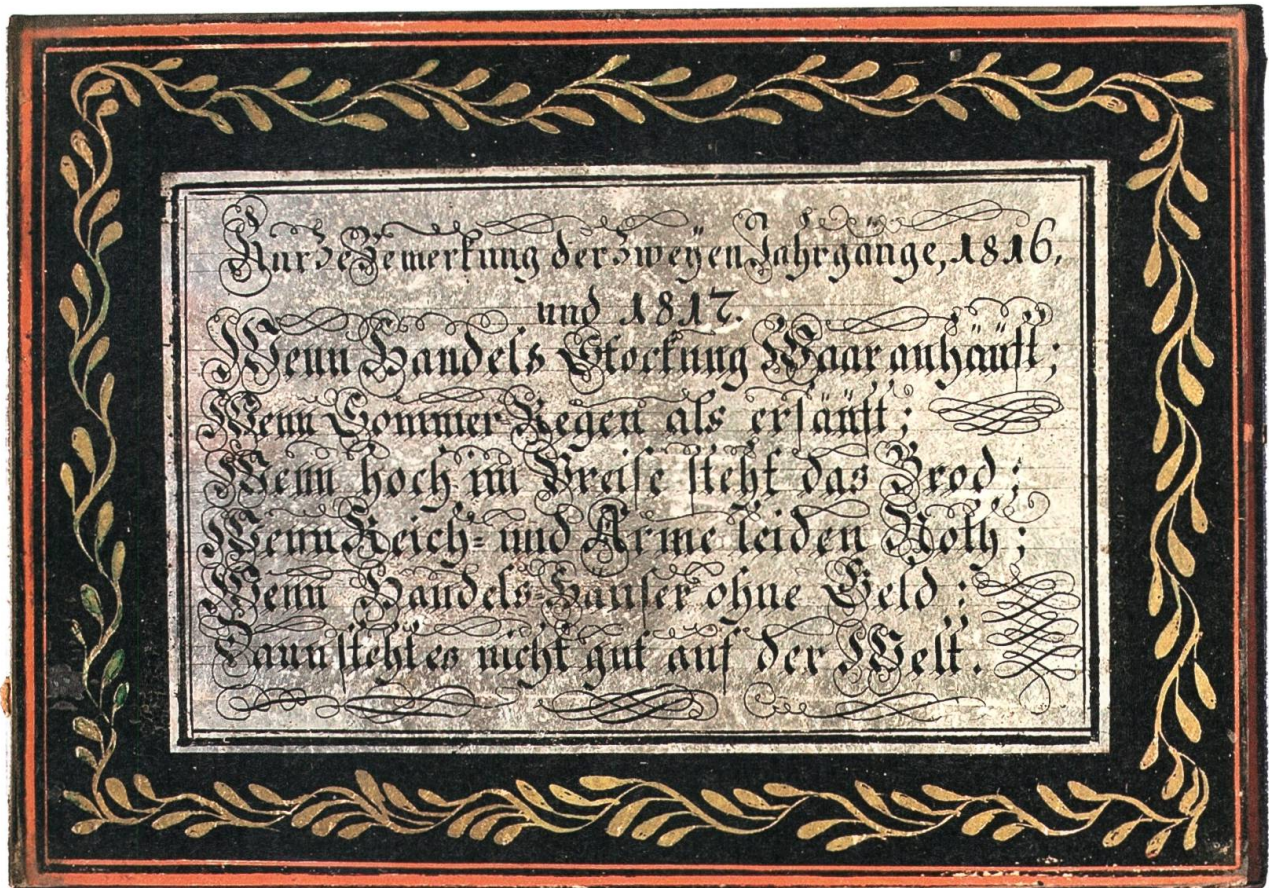 Kurze Bemerkung der zweÿen Jahrgänge, 1816,
und 1817.
Wenn Handels Stockung Waar anhäuft;
Wenn Sommer Regen als ersäuft;
Wenn hoch im Preise steht das Brod;
Wenn Reich- und Arme leiden Noth;
Wenn Handels-Häuser ohne Geld;
Dann steht es nicht gut auf der Welt.